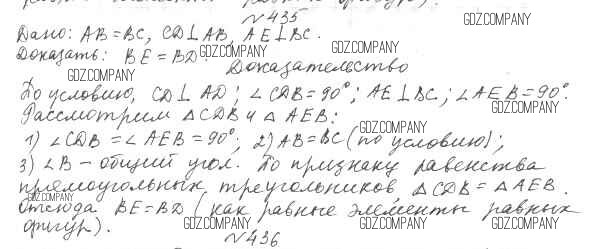 N 435 GDZ.COMPANY
Дано: AB = BC, CD⊥AB, AE⊥BC.
GDZ.COMPANY
Доказать: BE = BD. GDZ.COMPANY
GDZ.COMPANY Доказательство
По условию, CD⊥AD; ∠CDB = 90°; AE⊥BC; ∠AEB = 90°.
Рассмотрим △CDB и △AEB: GDZ.COMPANY
GDZ.COMPANY
1) ∠CDB = ∠AEB = 90°; 2) AB = BC (по условию);
3) ∠B – общий угол. По признаку равенства
прямоугольных треугольников △CDB = △AEB.
GDZ.COMPANY
Отсюда BE = BD (как равные элементы равных
фигур). GDZ.COMPANY GDZ.COMPANY GDZ.COMPANY
N 436